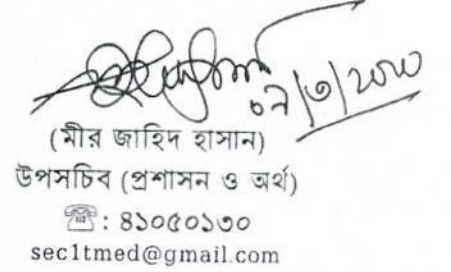 (মীর জাহিদ হাসান)
উপসচিব (প্রশাসন ও অর্থ)
☎: ৪১০৫০১৩০
sec1tmed@gmail.com